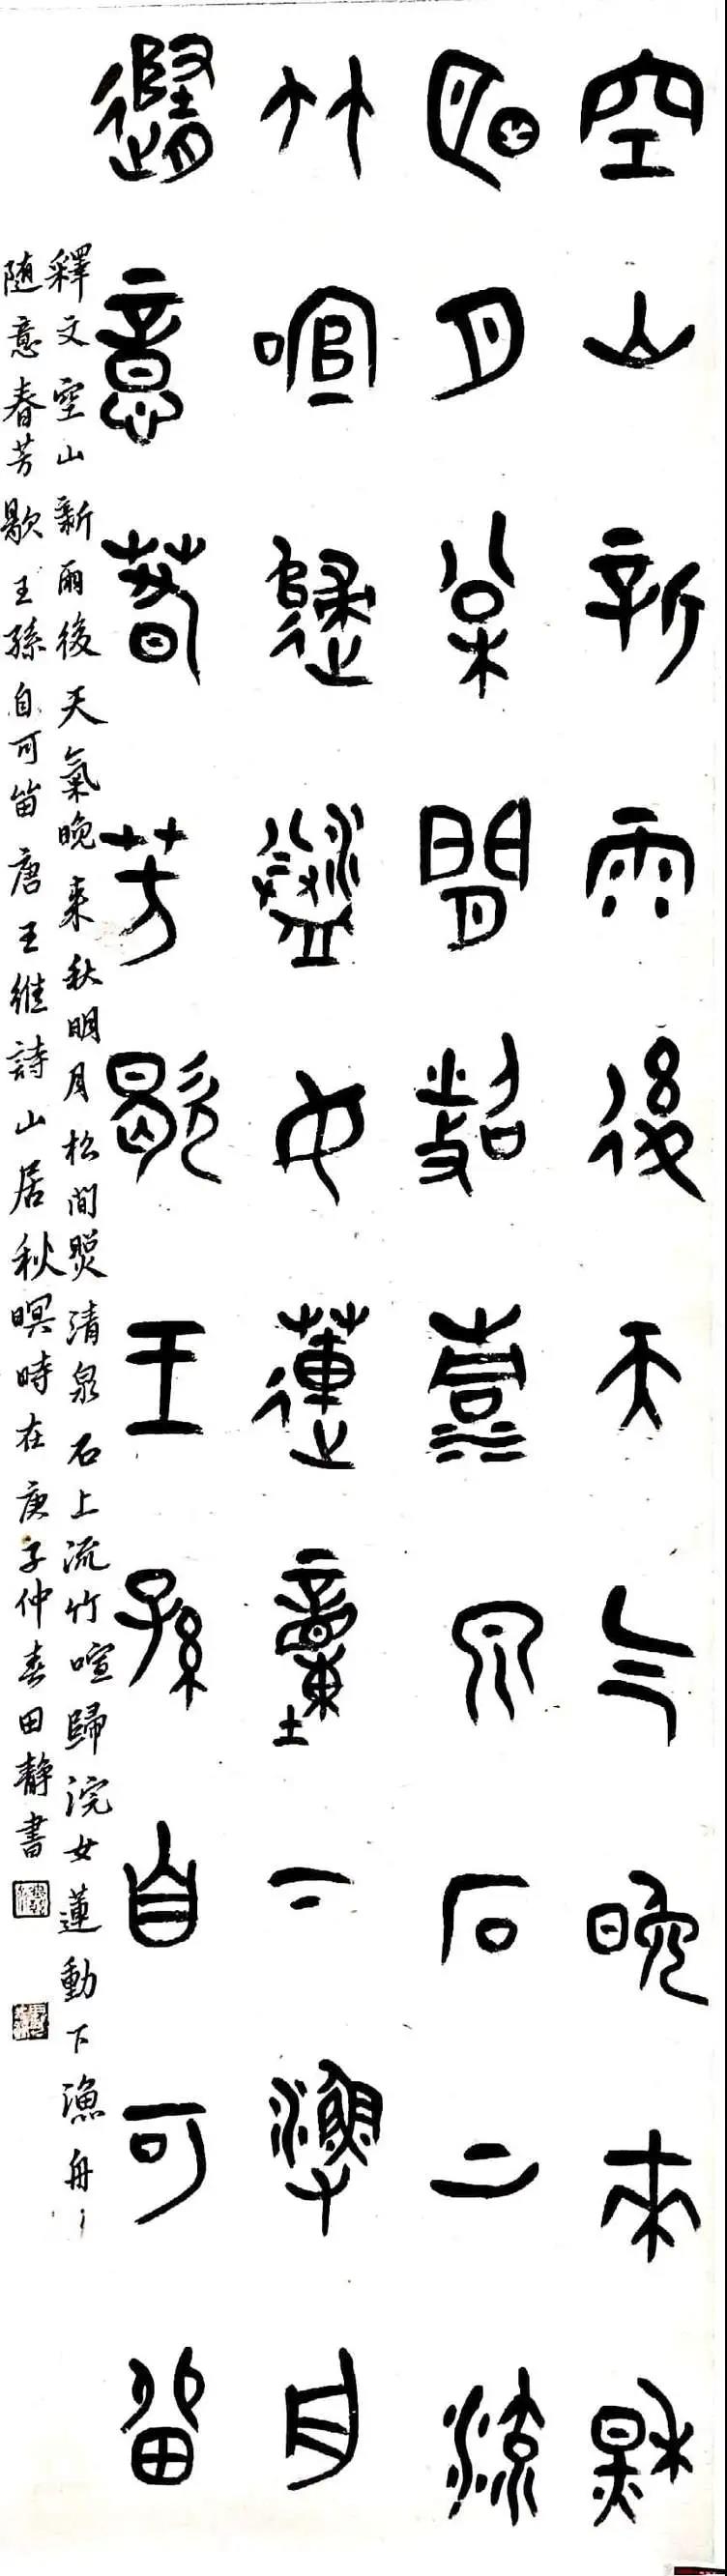 空山新雨後天气晚来秋
明月松間照清泉石上流
竹喧歸浣女蓮動下漁舟
隨意春芳歇王孫自可留
釋文空山新雨後天氣晚来秋明月松間照清泉石上流竹喧歸浣女蓮動下漁舟
随意春芳歇王孫自可留唐王維詩山居秋暝時在庚子仲春田靜書